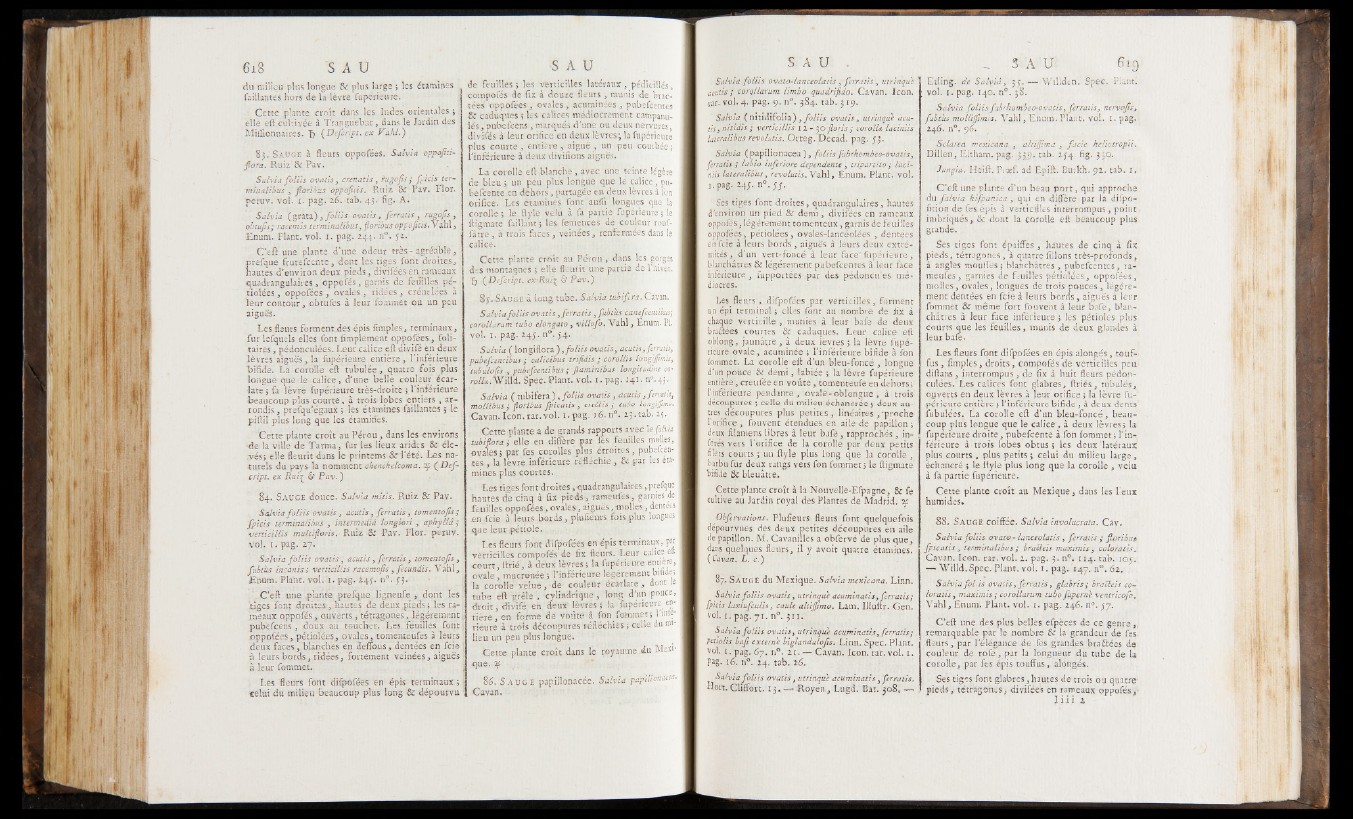 618 S A U
du milieu plus longue & plus large ; les étamines
ſaillantes hors de la lèvre ſupérieure.
Cette plante croît dans les Indes orientales ;
elle eſt cultivée à Tranquebar, dans le Jardin des
Miſſionnaires. ♄ (Deſcript. ex Vahl.)
83. SAUGE à fleurs oppoſées. Salvia oppoſiti-
flora. Ruiz & Pav.
Salvia foliis ovatis, crenatis, rugoſis ; ſpicis ter-
minalibus, floribus oppoſitis. Ruiz & Pav. Flor.
peruv. vol. 1. pag. 26. tab. 43. fig. A.
Salvia (grata), foliis ovatis, ſerratis, rugoſis,
obtuſis ; racemis terminalibus, floribus oppoſitis. Vahl,
Enum. Plant. vol. 1. pag. 244. n°. 52.
C'eſt une plante d'une odeur très-agréable,
preſque fruteſcente, dont les tiges ſont droites,
hautes d'environ deux pieds, diviſées en rameaux
quadrangulaires, oppoſés, garnis de feuilles pé-
tiolées, oppoſées, ovales, ridées, crénelées à
leur contour, obtuſes à leur ſommet ou un peu
aiguës.
Les fleurs forment des épis ſimples, terminaux,
ſur leſquels elles ſont ſimplement oppoſées, ſoli-
taires, pédonculées. Leur calice eſt diviſé en deux
lèvres aiguës, la ſupérieure entière, l'inférieure
bifide. La corolle eſt tubulée, quatre fois plus
longue que le calice, d'une belle couleur écar-
late ; ſa lèvre ſupérieure très-droite ; l'inférieure
beaucoup plus courte, à trois lobes entiers, ar-
rondis, preſqu'égaux ; les étamines ſaillantes ; le
piſtil plus long que les étamines.
Cette plante croît au Pérou, dans les environs
de la ville de Tarma, ſur les lieux arides & éle-
vés ; elle fleurit dans le printems & l'été. Les na-
turels du pays la nomment chenchelcoma. ♃ (Deſ-
cript. ex Ruiz & Pav.)
84. SAUGE douce. Salvia mitis. Ruiz & Pav.
Salvia foliis ovatis, acutis, ſerratis, tomentoſis ;
ſpicis terminalibus, intermediâ longiori, aphyllâ ;
verticillis multifloris. Ruiz & Pav. Flor. peruv.
vol. 1. pag. 27.
Salvia foliis ovatis, acutis, ſerratis, tomentoſis,
ſubtùs incanis ; verticillis racemoſis, ſecundis. Vahl,
Enum. Plant. vol. 1. pag. 245. n°. 53.
C'eſt une plante preſque ligneuſe, dont les
tiges ſont droites, hautes de deux pieds ; les ra-
meaux oppoſés, ouverts, tétragones, légérement
pubeſcens, doux au toucher. Les feuilles ſont
oppoſées, pétiolées, ovales, tomenteuſes à leurs
deux faces, blanches en deſſous, dentées en ſcie
à leurs bords, ridées, fortement veinées, aiguës
à leur ſommet.
Les fleurs ſont diſpoſées en épis terminaux ;
celui du milieu beaucoup plus long & dépourvu
S A U
de feuilles ; les verticilles latéraux, pédicillés,
compoſés de ſix à douze fleurs, munis de brac-
tées oppoſées, ovales, acuminées, pubeſcentes
& caduques ; les calices médiocrement campanu-
lés, pubeſcens, marqués d'une ou deux nervures,
diviſés à leur orifice en deux lèvres ; la ſupérieure
plus courte, entière, aiguë, un peu courbée ;
l'inférieure à deux diviſions aiguës.
La corolle eſt blanche, avec une teinte légère
de bleu ; un peu plus longue que le calice, pu-
beſcente en dehors, partagée en deux lèvres à ſon
orifice. Les étamines ſont auſſi longues que la
corolle ; le ſtyle velu à ſa partie ſupérieure ; le
ſtigmate ſaillant ; les ſemences de couleur rouſ-
ſâtre, à trois faces, veinées, renfermées dans le
calice.
Cette plante croît au Pérou, dans les gorges
des montagnes ; elle fleurit une partie de l'hiver.
♄ (Deſcript. ex Ruiz & Pav.)
85. SAUGE à long tube. Salvia tubiflora. Cavan.
Salvia foliis ovatis, ſerratis, ſubtùs caneſcentibus ;
corollarum tubo elongato, villoſo. Vahl, Enum. Pl.
vol. 1. pag. 245. n°. 54.
Salvia (longiflora), foliis ovatis, acutis, ſerratis,
pubeſcentibus ; calicibus trifidis ; corollis longiſſimis,
tubuloſis, pubeſcentibus ; ſtaminibus longitudine co-
rollæ. Willd. Spec. Plant. vol. 1. pag. 141. n°. 43.
Salvia (tubifera), foliis ovatis, acutis, ſerratis,
mollibus ; floribus ſpicatis, erectis ; tubo longiſſimo.
Cavan. Icon. rar. vol. 1. pag. 16. n°. 25. tab. 25.
Cette plante a de grands rapports avec le ſalvia
tubiflora ; elle en diffère par ſes feuilles molles,
ovales ; par ſes corolles plus étroites, pubeſcen-
tes, la lèvre inférieure réfléchie, & par les éta-
mines plus courtes.
Les tiges ſont droites, quadrangulaires, preſque
hautes de cinq à ſix pieds, rameuſes, garnies de
feuilles oppoſées, ovales, aiguës, molles, dentées
en ſcie à leurs bords, pluſieurs fois plus longues
que leur pétiole.
Les fleurs ſont diſpoſées en épis terminaux, par
verticilles compoſés de ſix fleurs. Leur calice eſt
court, ſtrié, à deux lèvres ; la ſupérieure entière,
ovale, mucronée ; l'inférieure légérement bifide ;
la corolle velue, de couleur écarlate, dont le
tube eſt grêle, cylindrique, long d'un pouce,
droit, diviſé en deux lèvres ; la ſupérieure en-
tière, en forme de voûte à ſon ſommet ; l'infé-
rieure à trois découpures réfléchies ; celle du mi-
lieu un peu plus longue.
Cette plante croît dans le royaume du Mexi-
que. ♃
86. SAUGE papillonacée. Salvia papillonacea.
Cavan.
S A U
Salvia foliis ovato-lanceolatis, ſerratis, utrinquè
acutis ; corollarum limbo quadrifido. Cavan. Icon.
rar. vol. 4. pag. 9. n°. 384. tab. 319.
Salvia (nitidifolia), foliis ovatis, utrinquè acu-
tis, nitidis ; verticillis 12-30 floris ; corollæ laciniis
lateralibus revolutis. Orteg. Decad. pag. 53.
Salvia (papilionacea), foliis ſubrhombeo-ovatis,
ſerratis ; labio inferiore dependente, tripartito ; laci-
niis lateralibus, revolutis. Vahl, Enum. Plant. vol.
1. pag. 245. n°. 55.
Ses tiges ſont droites, quadrangulaires, hautes
d'environ un pied & demi, diviſées en rameaux
oppoſés, légérement tomenteux, garnis de feuilles
oppoſées, pétiolées, ovales-lancéolées, dentées
en ſcie à leurs bords, aiguës à leurs deux extré-
mités, d'un vert-foncé à leur face ſupérieure,
blanchâtres & légérement pubeſcentes à leur face
inférieure, ſupportées par des pédoncules mé-
diocres.
Les fleurs, diſpoſées par verticilles, forment
un épi terminal ; elles ſont au nombre de ſix à
chaque verticille, munies à leur baſe de deux
bractées courtes & caduques. Leur calice eſt
oblong, jaunâtre, à deux lèvres ; la lèvre ſupé-
rieure ovale, acuminée ; l'inférieure bifide à ſon
ſommet. La corolle eſt d'un bleu-foncé, longue
d'un pouce & demi, labiée ; la lèvre ſupérieure
entière, creuſée en voûte, tomenteuſe en dehors ;
l'inférieure pendante, ovale-oblongue, à trois
découpures ; celle du milieu échancrée ; deux au-
tres découpures plus petites, linéaires, proche
l'orifice, ſouvent étendues en aile de papillon ;
deux filamens libres à leur baſe, rapprochés, in-
ſérés vers l'orifice de la corolle par deux petits
filets courts ; un ſtyle plus long que la corolle,
barbu ſur deux rangs vers ſon ſommet ; le ſtigmate
bifide & bleuâtre.
Cette plante croît à la Nouvelle-Eſpagne, & ſe
cultive au Jardin royal des Plantes de Madrid. ♃
Obſervations. Pluſieurs fleurs ſont quelquefois
dépourvues des deux petites découpures en aile
de papillon. M. Cavanilles a obſervé de plus que,
dans quelques fleurs, il y avoit quatre étamines.
(Cavan. l. c.)
87. SAUGE du Mexique. Salvia mexicana. Linn.
Salvia foliis ovatis, utrinquè acuminatis, ſerratis ;
ſpicis laxiuſculis, caule altiſſimo. Lam. Illuſtr. Gen.
vol. 1. pag. 71. n°. 311.
Salvia foliis ovatis, utrinquè acuminatis, ſerratis ;
petiolis baſi externè biglanduloſis. Linn. Spec. Plant.
vol. 1. pag. 67. n°. 21. — Cavan. Icon. rar. vol. 1.
pag. 16. n°. 24. tab. 26.
Salvia foliis ovatis, utrinquè acuminatis, ſerratis.
Hort. Cliffort. 13. — Royen, Lugd. Bat. 308. —
S A U 619
Etling. de Salviâ, 35. — Willden. Spec. Plant.
vol. 1. pag. 140. n°. 38.
Salvia foliis ſubrhombeo-ovatis, ſerratis, nervoſis,
ſubtùs molliſſimis. Vahl, Enum. Plant. vol. 1. pag.
246. n°. 56.
Sclarea mexicana, altiſſima, facie heliotropii.
Dillen, Eltham. pag. 339. tab. 254. fig. 330.
Jungia. Heiſt. Præf. ad Epiſt. Burkh. 92. tab. 1.
C'eſt une plante d'un beau port, qui approche
du ſalvia hiſpanica, qui en diffère par la diſpo-
ſition de ſes épis à verticilles interrompus, point
imbriqués, & dont la corolle eſt beaucoup plus
grande.
Ses tiges ſont épaiſſes, hautes de cinq à ſix
pieds, tétragones, à quatre ſillons très-profonds,
à angles mouſſes ; blanchâtres, pubeſcentes, ra-
meuſes, garnies de feuilles pétiolées, oppoſées,
molles, ovales, longues de trois pouces, légére-
ment dentées en ſcie à leurs bords, aiguës à leur
ſommet & même fort ſouvent à leur baſe, blan-
châtres à leur face inférieure ; les pétioles plus
courts que les feuilles, munis de deux glandes à
leur baſe.
Les fleurs ſont diſpoſées en épis alongés, touf-
fus, ſimples, droits, compoſés de verticilles peu
diſtans, interrompus, de ſix à huit fleurs pédon-
culées. Les calices ſont glabres, ſtriés, tubulés,
ouverts en deux lèvres à leur orifice ; la lèvre ſu-
périeure entière ; l'inférieure bifide, à deux dents
ſubulées. La corolle eſt d'un bleu-foncé, beau-
coup plus longue que le calice, à deux lèvres ; la
ſupérieure droite, pubeſcente à ſon ſommet ; l'in-
férieure à trois lobes obtus ; les deux latéraux
plus courts, plus petits ; celui du milieu large,
échancré ; le ſtyle plus long que la corolle, velu
à ſa partie ſupérieure.
Cette plante croît au Mexique, dans les lieux
humides.
88. SAUGE coiffée. Salvia involucrata. Cav.
Salvia foliis ovato-lanceolatis, ſerratis ; floribus
ſpicatis, terminalibus ; bracteis maximis, coloratis.
Cavan. Icon. rar. vol. 2. pag. 3. n°. 114. tab. 105.
— Willd. Spec. Plant. vol. 1. pag. 147. n°. 62.
Salvia foliis ovatis, ſerratis, glabris ; bracteis co-
loratis, maximis ; corollarum tubo ſupernè ventricoſo.
Vahl, Enum. Plant. vol. 1. pag. 246. n°. 57.
C'eſt une des plus belles eſpèces de ce genre,
remarquable par le nombre & la grandeur de ſes
fleurs, par l'élégance de ſes grandes bractées de
couleur de roſe, par la longueur du tube de la
corolle, par ſes épis touffus, alongés.
Ses tiges ſont glabres, hautes de trois ou quatre
pieds, tétragones, diviſées en rameaux oppoſés,
Iiii 2